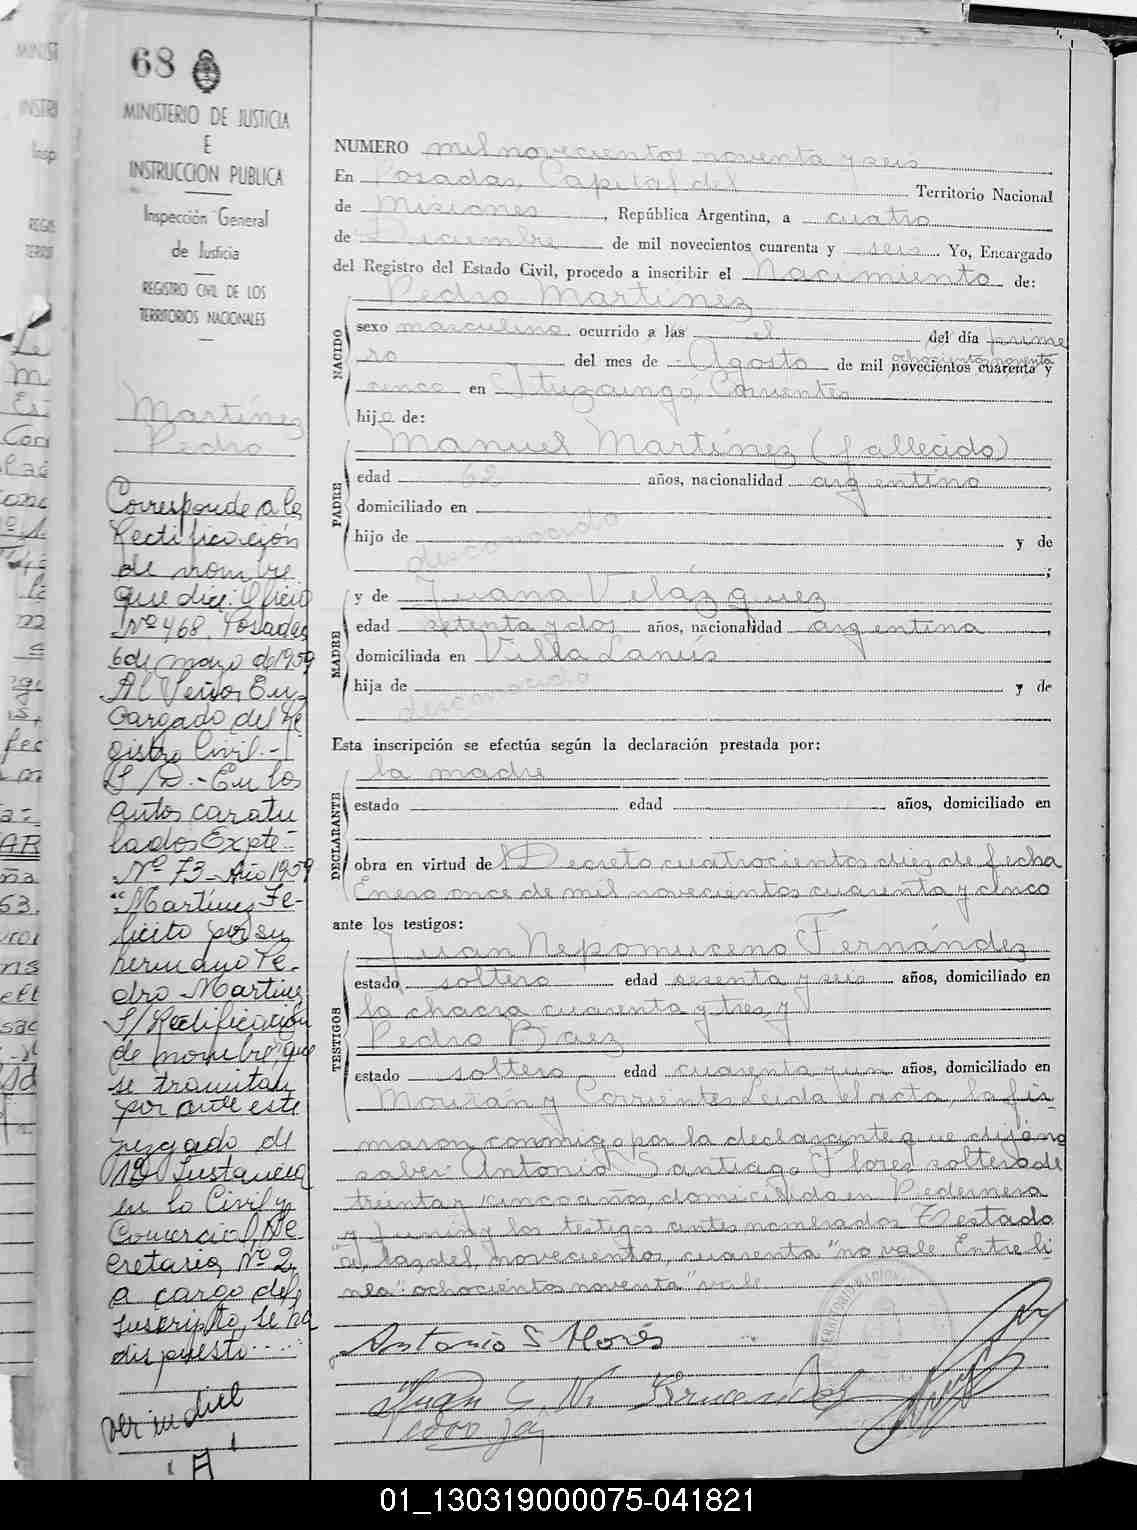 68
MINISTERIO DE JUSTICIA
E
INSTRUCCION PUBLICA
Inspección General
de Justicia
REGISTRO CIVIL DE LOS
TERRITORIOS NACIONALES
Martínez
Pedro
Corresponde a la
Rectificación
de nombre
que dice: Oficio
Nº 468. Posadas
6 de mayo de 1959
Al Señor En-
cargado del Re
gistro Civil.-
S/D.- En los
autos caratu
lados Expte-
Nº 73 Año 1959
"Martínez Fe-
licito por su
hermano Pe-
dro Martínez
S/ Rectificación
de nombre", que
se tramitan
por ante este
juzgado de
1a Instancia
en lo Civil y
Comercial, Se
cretaria Nº 2,
a cargo del
suscripto, se ha
dispuesto.....
Ver indice
"A"
NUMERO mil novecientos noventa y seis
En Posadas, Capital del Territorio Nacional
de Misiones, República Argentina, a cuatro
de Diciembre de mil novecientos cuarenta y seis. Yo, Encargado
del Registro del Estado Civil, procedo a inscribir el Nacimiento de:
NACIDO
Pedro Martínez
sexo masculino ocurrido a las el del día prime
ro del mes de Agosto de mil novecientos cuarenta y
ochocientos noventa
cinco en Ituzaingó, Corrientes
hijo de:
PADRE
Manuel Martínez (fallecido)
edad 62 años, nacionalidad argentino,
domiciliado en
hijo de y de
desconocido
;
MADRE
y de Juana Velázquez
edad setenta y dos años, nacionalidad argentina,
domiciliada en Villa Lanús
hija de y de
desconocido
Esta inscripción se efectúa según la declaración prestada por:
DECLARANTE
la madre
estado edad años, domiciliado en
obra en virtud de Decreto cuatrocientos diez de fecha
Enero once de mil novecientos cuarenta y cinco
ante los testigos:
TESTIGOS
Juan Nepomuceno Fernández
estado soltero edad sesenta y seis años, domiciliado en
la chacra cuarenta y tres y
Pedro Baez
estado soltero edad cuarenta y un años, domiciliado en
y Corrientes Leída el acta, la fir-
maron conmigo por la declarante que dijo no
saber Antonio Santiago Flores soltero de
treinta y cinco años, domiciliado en Pedernera
y Junín y los testigos antes nombrados Testado
novecientos, cuarenta "no vale. Entre li
nea: "ochocientos noventa" vale
Antonio S Flores
Juan N. Fernandez
01_130319000075-041821